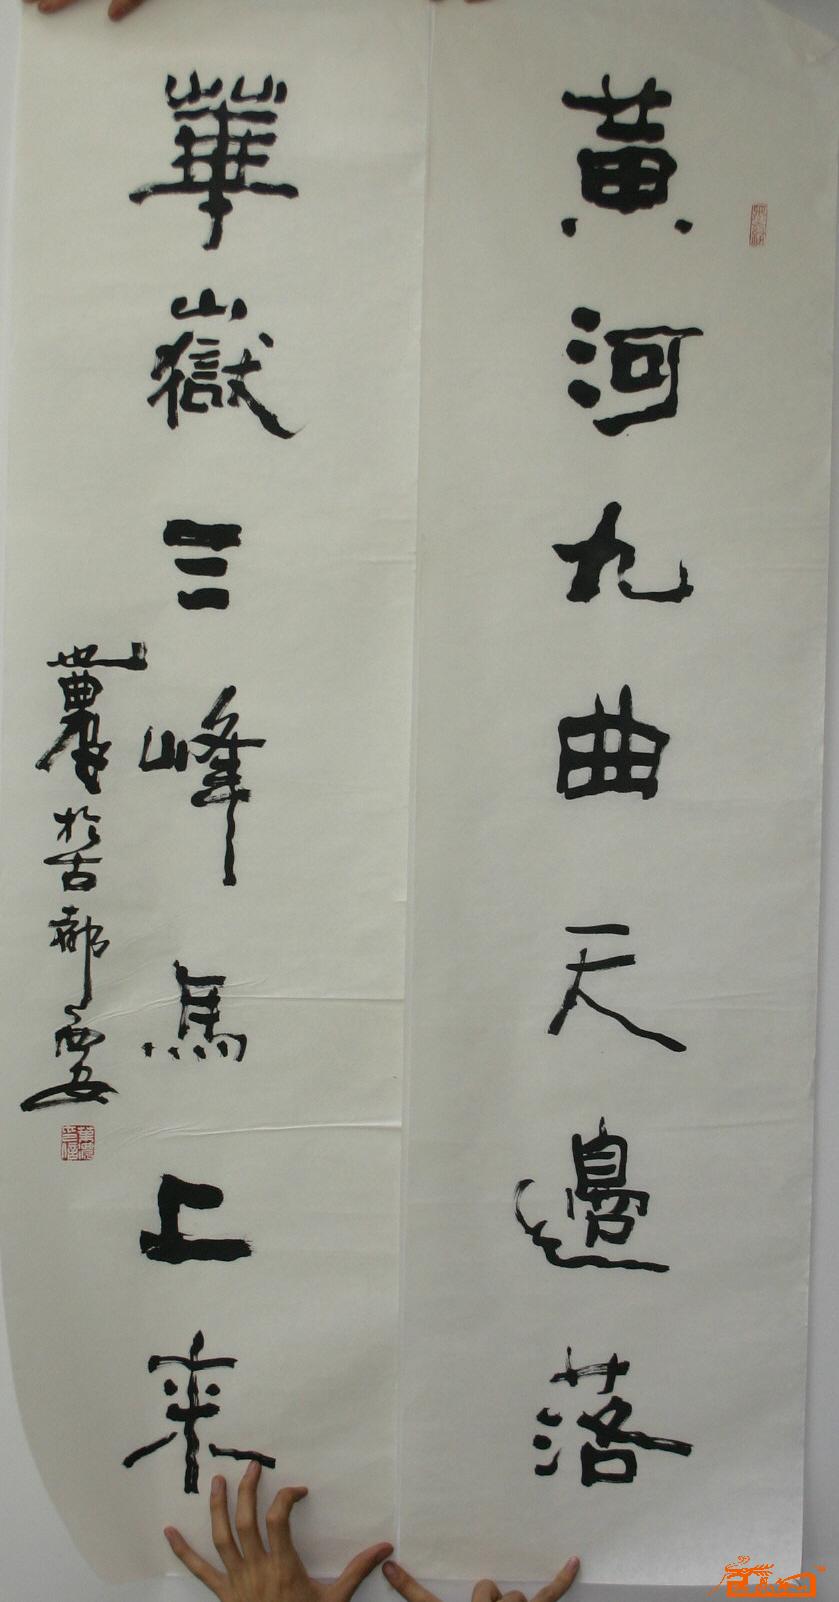 黃河九曲天邊落
華嶽三峰馬上來
世農於古都西安